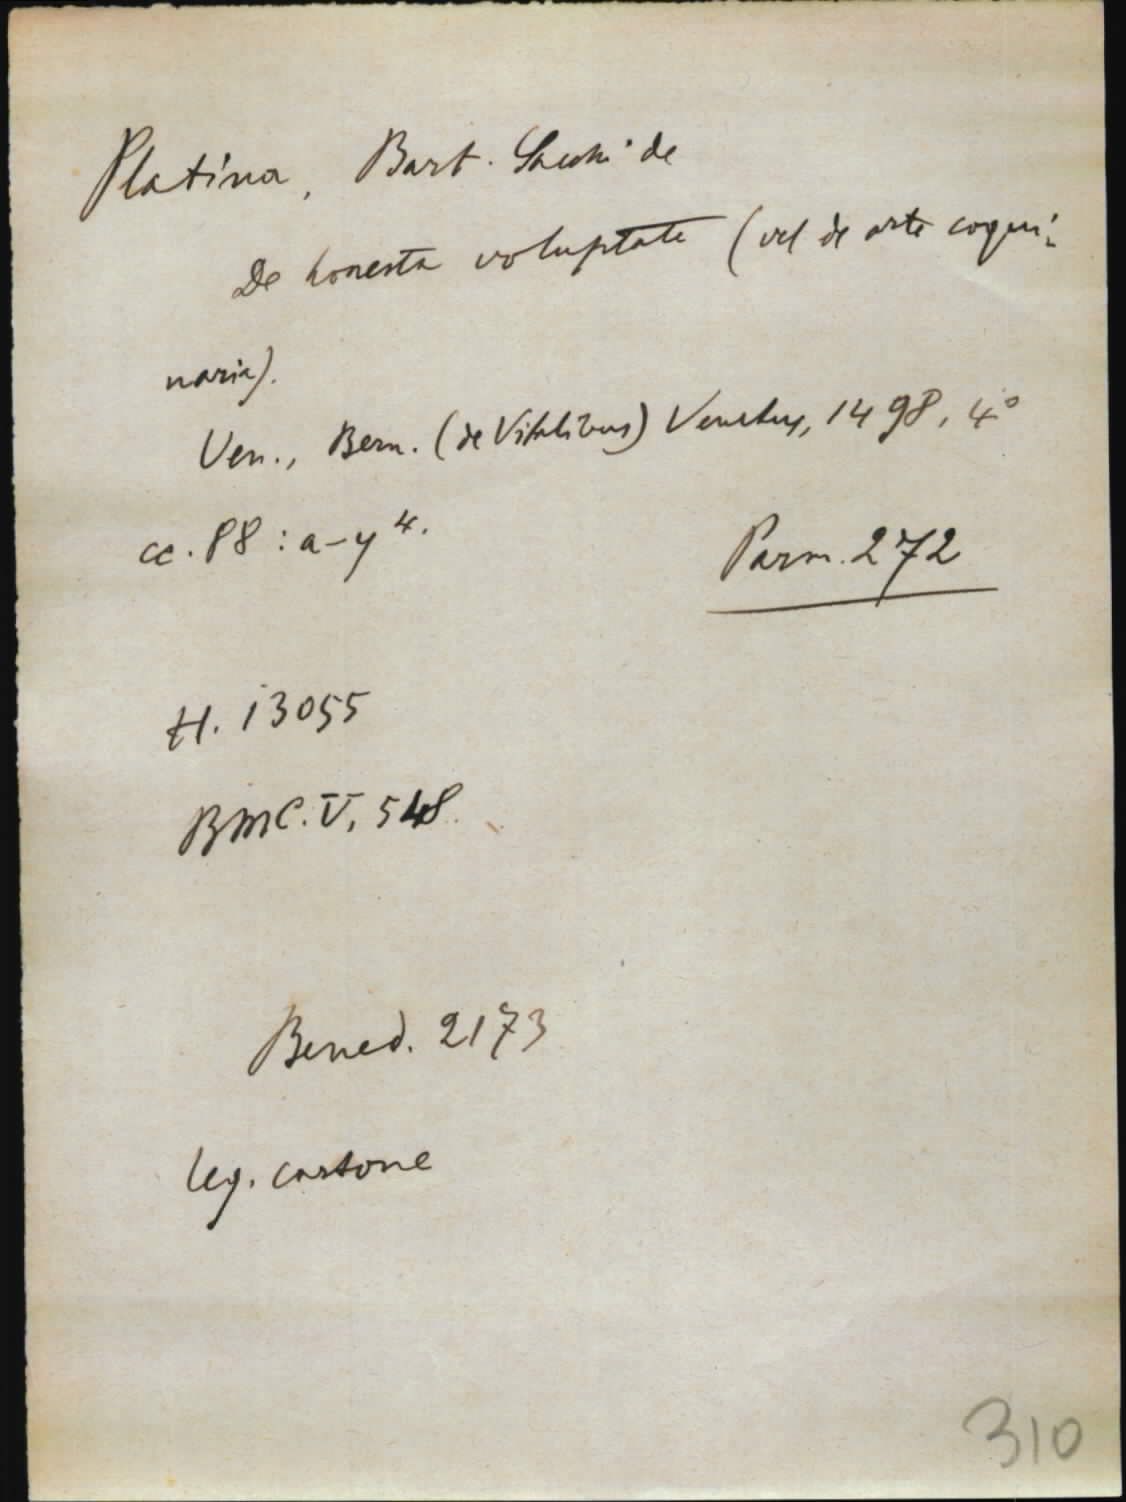 Platina, Bart. Sacchi de
De honesta voluptate (vel de arte coqui-
naria).
Ven., Bern. (de Vitalibus) Venetus, 1498, 4°
cc. 88 : a-y⁴.
Parm. 272
H. 13055
BMC. V, 548.
Bened. 2173
leg. cartone
310